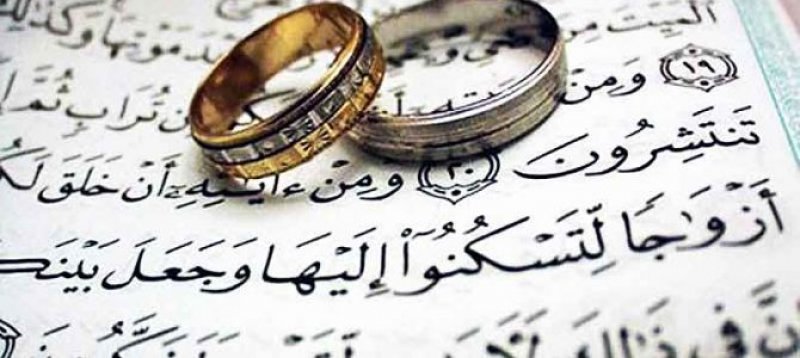 ٱلْمَيِّتَ مِنَ مَوْتِهَا وَكَذَٰلِ
١٩ وَمِنْ تُرَابٍ ثُمَّ
تَنتَشِرُونَ ٢٠ وَمِنْ ءَايَٰتِهِۦٓ أَنْ خَلَقَ لَكُ
أَزْوَٰجًا لِّتَسْكُنُوٓا۟ إِلَيْهَا وَجَعَلَ بَيْنَكُ
نَّ فِى ذَٰلِكَ